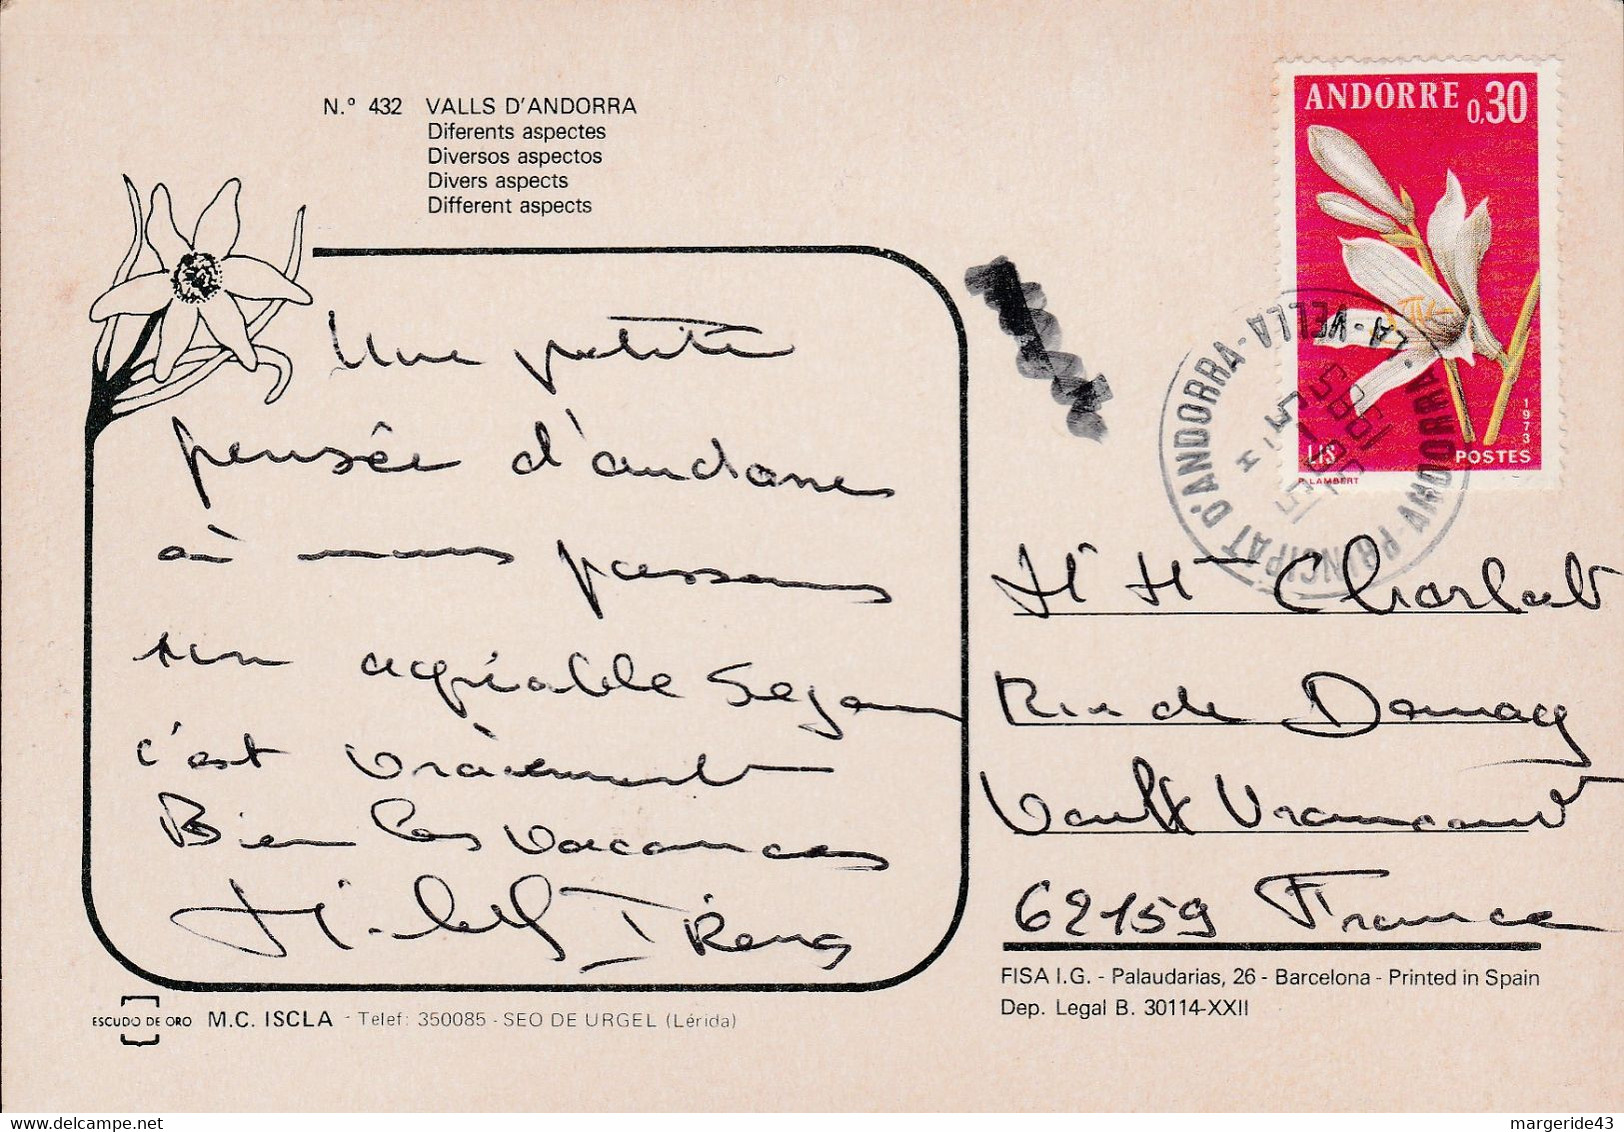 N.º 432 VALLS D'ANDORRA
Diferents aspectes
Diversos aspectos
Divers aspects
Different aspects
ANDORRE 0,30
1973
LIS
POSTES
P. LAMBERT
PRINCIPAT D'ANDORRA - ANDORRA - LA - VELLA
1985
Une petite
pensée d'andorre
où nous passons
un agréable Sejour
c'est vraiement
Bien les vacances
Mr Mme Charlet
Rue de Domacy
Vaulx Vraucourt
62159 France
ESCUDO DE ORO M.C. ISCLA - Telef: 350085 - SEO DE URGEL (Lérida)
FISA I.G. - Palaudarias, 26 - Barcelona - Printed in Spain
Dep. Legal B. 30114-XXII
margeride43